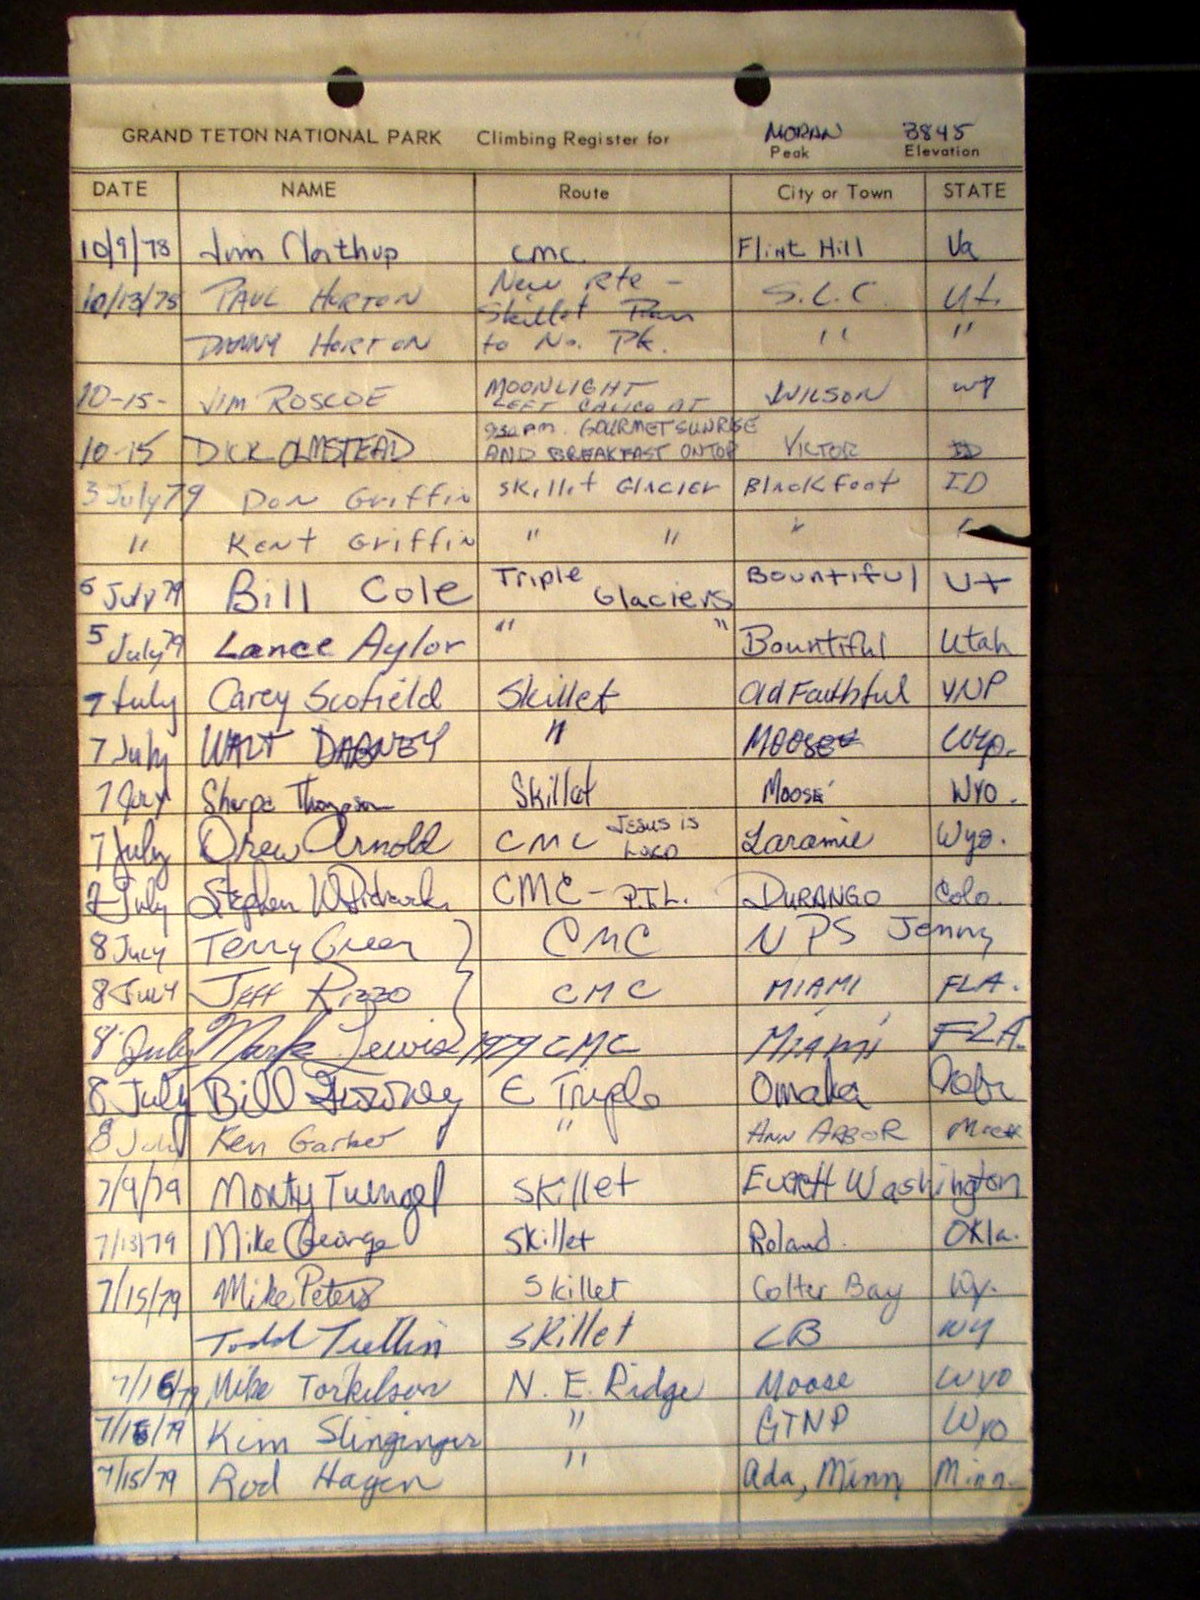 GRAND TETON NATIONAL PARK Climbing Register for MORAN 3845
Peak Elevation
DATE NAME Route City or Town STATE
10/9/78 Jim Northup CMC Flint Hill Va
10/13/78 PAUL HORTON New Rte - Skillet to No. Pk. S.L.C. Ut.
DANNY HORTON " "
10-15- JIM ROSCOE MOONLIGHT LEFT CALICO AT WILSON WY
10-15 DICK OLMSTEAD 9:30 PM. GOURMET SUNRISE AND BREAKFAST ON TOP VICTOR ID
3 July 79 Don Griffin Skillit Glacier Blackfoot ID
" Kent Griffin " " " "
5 July 79 Bill Cole Triple Glaciers Bountiful Ut
5 July 79 Lance Aylor " " Bountiful Utah
7 July Carey Scofield Skillet Old Faithful YNP
7 July WALT DABNEY " MOOSE Wyo.
7 July Sherpa Thompson Skillet Moose WYO.
7 July Drew Arnold CMC JESUS IS LORD Laramie Wyo.
July Stephen W CMC - P.T.L. DURANGO Colo.
8 July Terry Green CMC NPS Jenny
8 July Jeff Rizzo CMC MIAMI FLA.
8 July Mark Lewis 1979 CMC MIAMI FLA.
8 July Bill E Triple Omaha Nebr
8 July Ken Garber " ANN ARBOR
7/9/79 Monty Skillet Everett Washington
7/13/79 Mike George Skillet Roland. Okla.
7/15/79 Mike Peters Skillet Colter Bay Wy.
Todd Skillet CB WY
7/16/79 Mike Torkilson N. E. Ridge Moose WYO
7/16/79 Kim Slinginger " GTNP Wyo
7/15/79 Rod Hagen " Ada, Minn Minn.